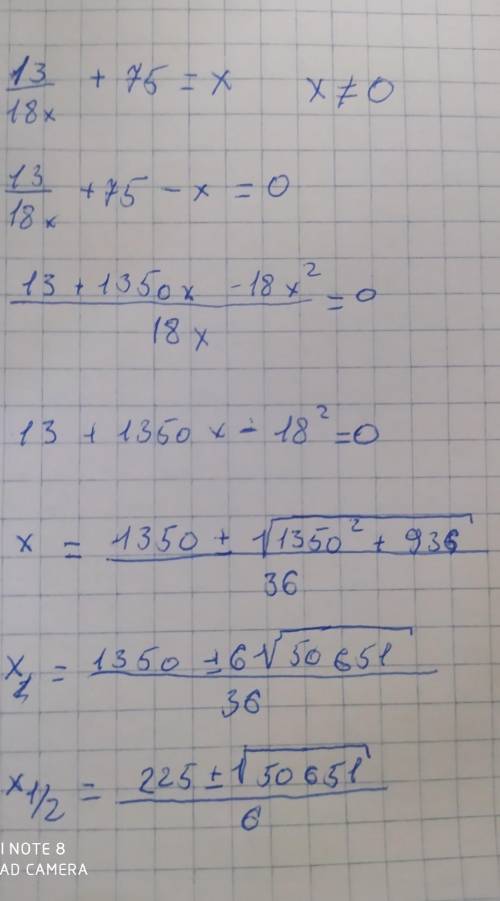 13/18x + 75 = x x ≠ 0
13/18x + 75 - x = 0
(13 + 1350x - 18x²)/18x = 0
13 + 1350x - 18² = 0
x = (1350 ± √(1350² + 936))/36
x₁ = (1350 ± 6√50651)/36
x₁/₂ = (225 ± √50651)/6
I NOTE 8
AD CAMERA